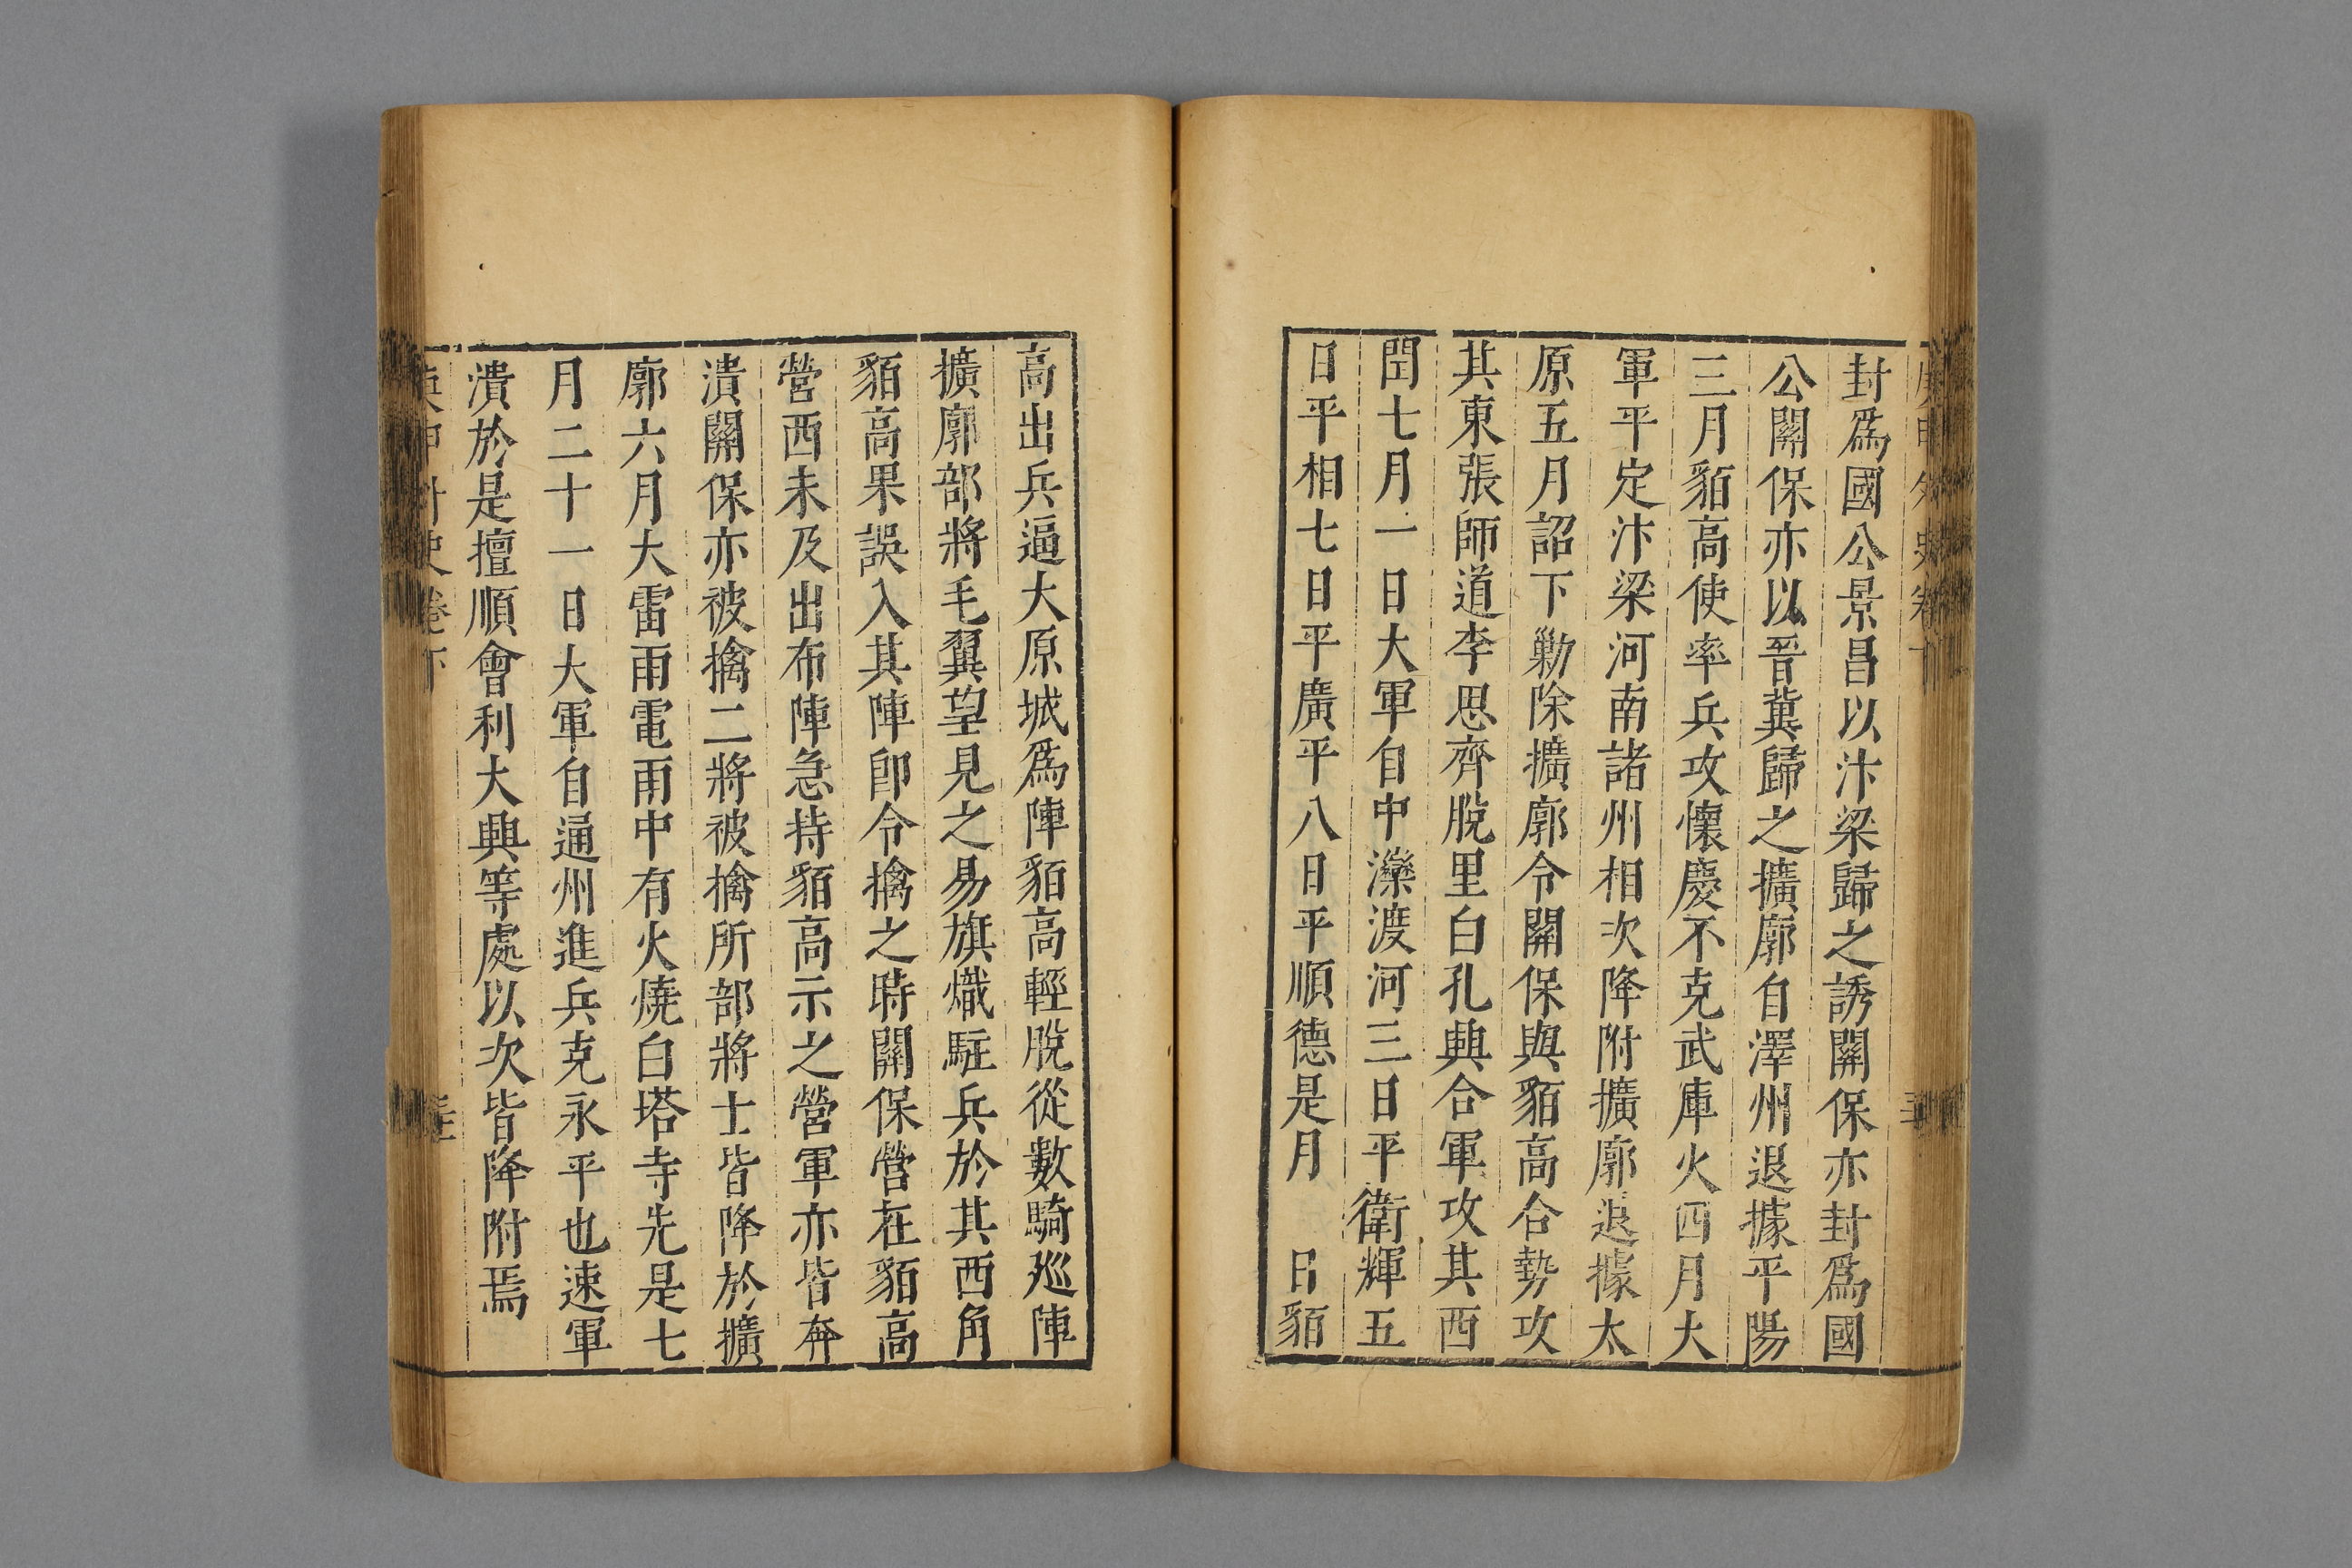 封爲國公景昌以汴梁歸之誘關保亦封爲國
公關保亦以晉冀歸之擴廓自澤州退據平陽
三月貊高使率兵攻懷慶不克武庫火四月大
軍平定汴梁河南諸州相次降附擴廓退據太
原五月詔下勦除擴廓令關保與貊高合勢攻
其東張師道李思齊脫里白孔興合軍攻其西
閏七月一日大軍自中灤渡河三日平衛輝五
日平相七日平廣平八日平順德是月　日貊
高出兵逼大原城爲陣貊高輕脫從數騎廵陣
擴廓部將毛翼望見之易旗熾駐兵於其西角
貊高果誤入其陣卽令擒之時關保營在貊高
營西未及出布陣急持貊高示之營軍亦皆奔
潰關保亦被擒二將被擒所部將士皆降於擴
廓六月大雷雨電雨中有火燒白塔寺先是七
月二十一日大軍自通州進兵克永平也速軍
潰於是擅順會利大興等處以次皆降附焉